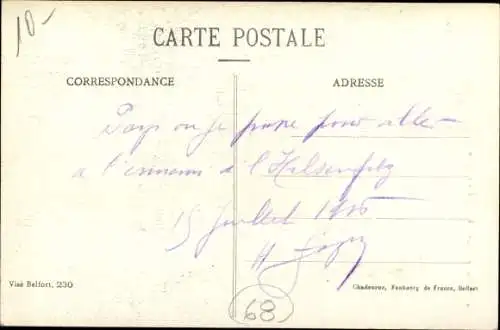 10-
CARTE POSTALE
CORRESPONDANCE
ADRESSE
Pays ou je passe pour aller
a l'ennemi a l'Hilsenfirst
15 Juillet 1915
H.
Visé Belfort, 230
Chadourne, Faubourg de France, Belfort
68